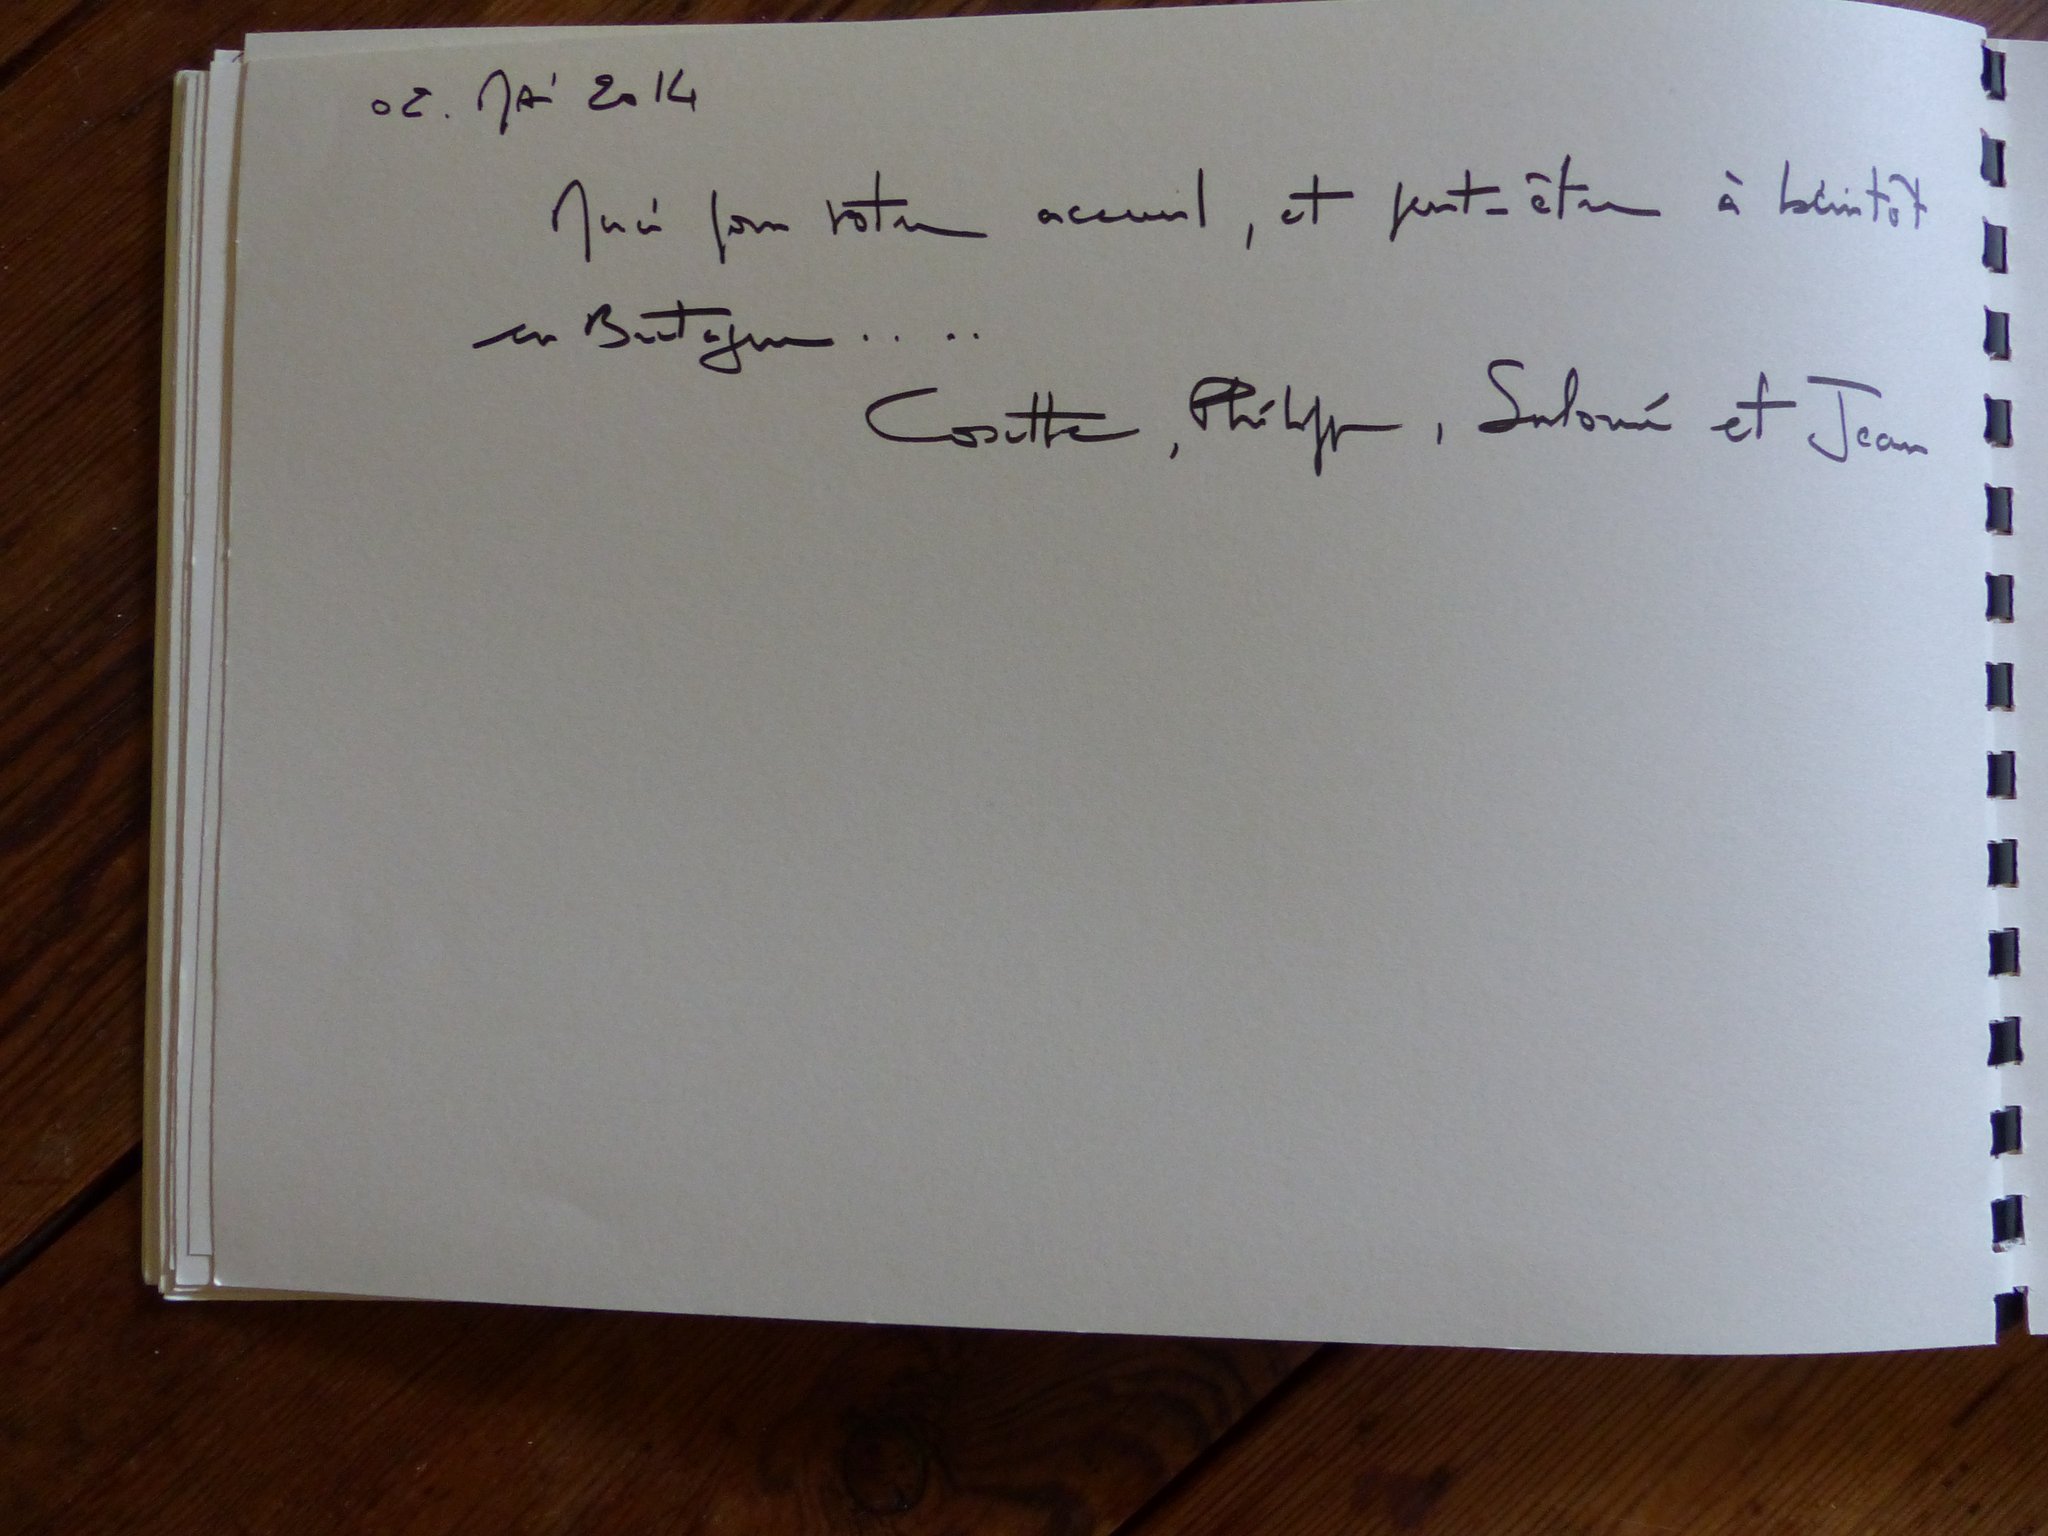 02. Mai 2014
Merci pour votre accueil, et peut-être à bientôt
en Bretagne.....
Cosette, Philippe, Salomé et Jean